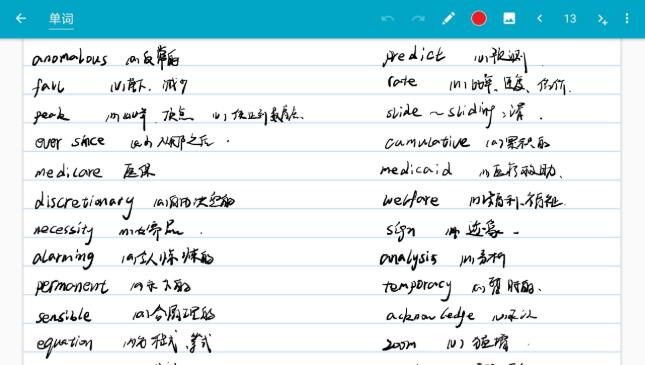 单词
13
anomalous (a)反常的
fall (v)落下, 减少
peak (n)山峰, 顶点 (v)
ever since (ad)从那之后.
medicare 医保
discretionary (a)自由决定的
necessity (n)必需品.
alarming (a)令人惊慌的
permanent (a)永久的
sensible (a)合情理的
equation (n)方程式、等式
predict (v)预测
rate (n)比率、速度、估价.
slide ~ sliding; 滑.
cumulative (a)累积的
medicaid (n)医疗救助、
welfare (n)福利、福祉.
sign (n)迹象.
analysis (n)分析
temporary (a)暂时的.
acknowledge (v)承认
zoom (v)